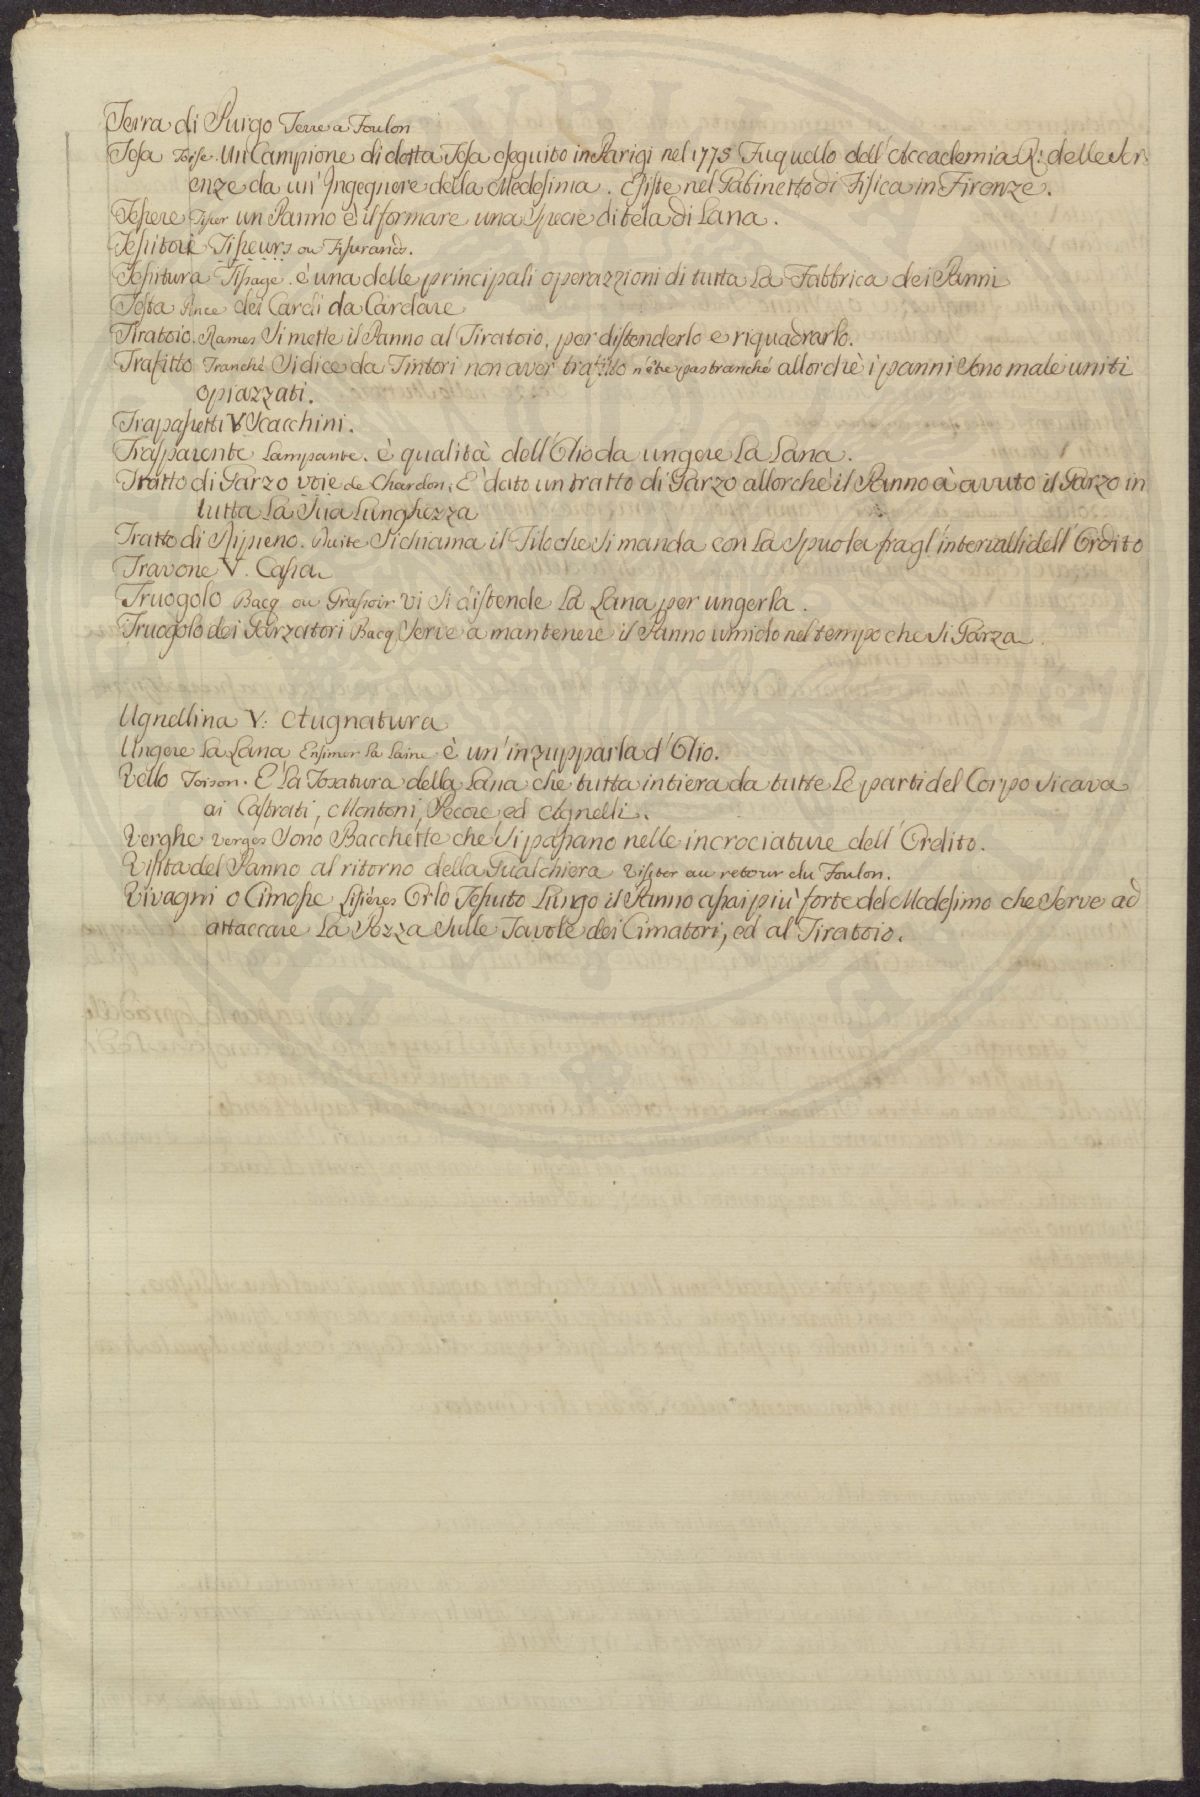 Terra di Purgo Terre a Foulon
Tesa Toise. Un Campione di detta Tesa eseguito in Parigi nel 1775 Fu quello dell'Accademia R: delle Sci
enze da un'Ingegnere della Medesima. Esiste nel Gabinetto di Fisica in Firenze.
Tessere Tisser un Panno è il formare una Specie di tela di Lana.
Tessitori Tisseurs ou Tisserands.
Tessitura Tissage. è una delle principali operazzioni di tutta La Fabbrica dei Panni
Testa Ance dei Cardi da Cardare
Tiratoio. Rames Si mette il Panno al Tiratoio, per distenderlo e riquadrarlo.
Trafitto Tranché Si dice da Tintori non aver trafitto n'étre pas tranché allorchè i panni Sono male uniti
o piazzati.
Trapassetti V Scacchini.
Trasparente Lampante. è qualità dell'Olio da ungere La Lana.
Tratto di Garzo voie de Chardon. E' dato un tratto di Garzo allorche il Panno à avuto il Garzo in
tutta La Sua Lunghezza
Tratto di Ripieno. Duite Si chiama il Filo che Si manda con La Spuola fragl'intervalli dell'Ordito
Travone V. Cassa
Truogolo Bacq ou Graissoir vi Si distende La Lana per ungerla.
Truogolo dei Garzatori Bacq Serve a mantenere il Panno umido nel tempo che Si Garza.
Ugnellina V. Augnatura
Ungere La Lana Ensimer La Laine è un'inzupparla d'Olio.
Vello Toison. E' La Tosatura della Lana che tutta intiera da tutte Le parti del Corpo Si cava
ai Castrati, Montoni, Pecore, ed Agnelli.
Verghe Verges Sono Bacchette che Si passano nelle incrociature dell'Ordito.
Visita del Panno al ritorno della Gualchiera Visiter au retour du Foulon.
Vivagni o Cimosse Lisiéres Orlo Tessuto Lungo il Panno assai più forte del Medesimo che Serve ad
attaccare La Pezza Sulle Tavole dei Cimatori, ed al Tiratoio.